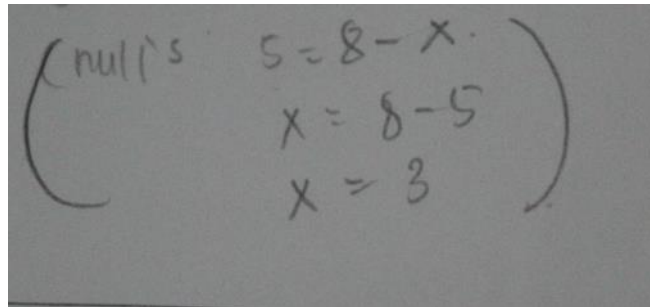 (null's 5 = 8 - x.
x = 8 - 5
x = 3)